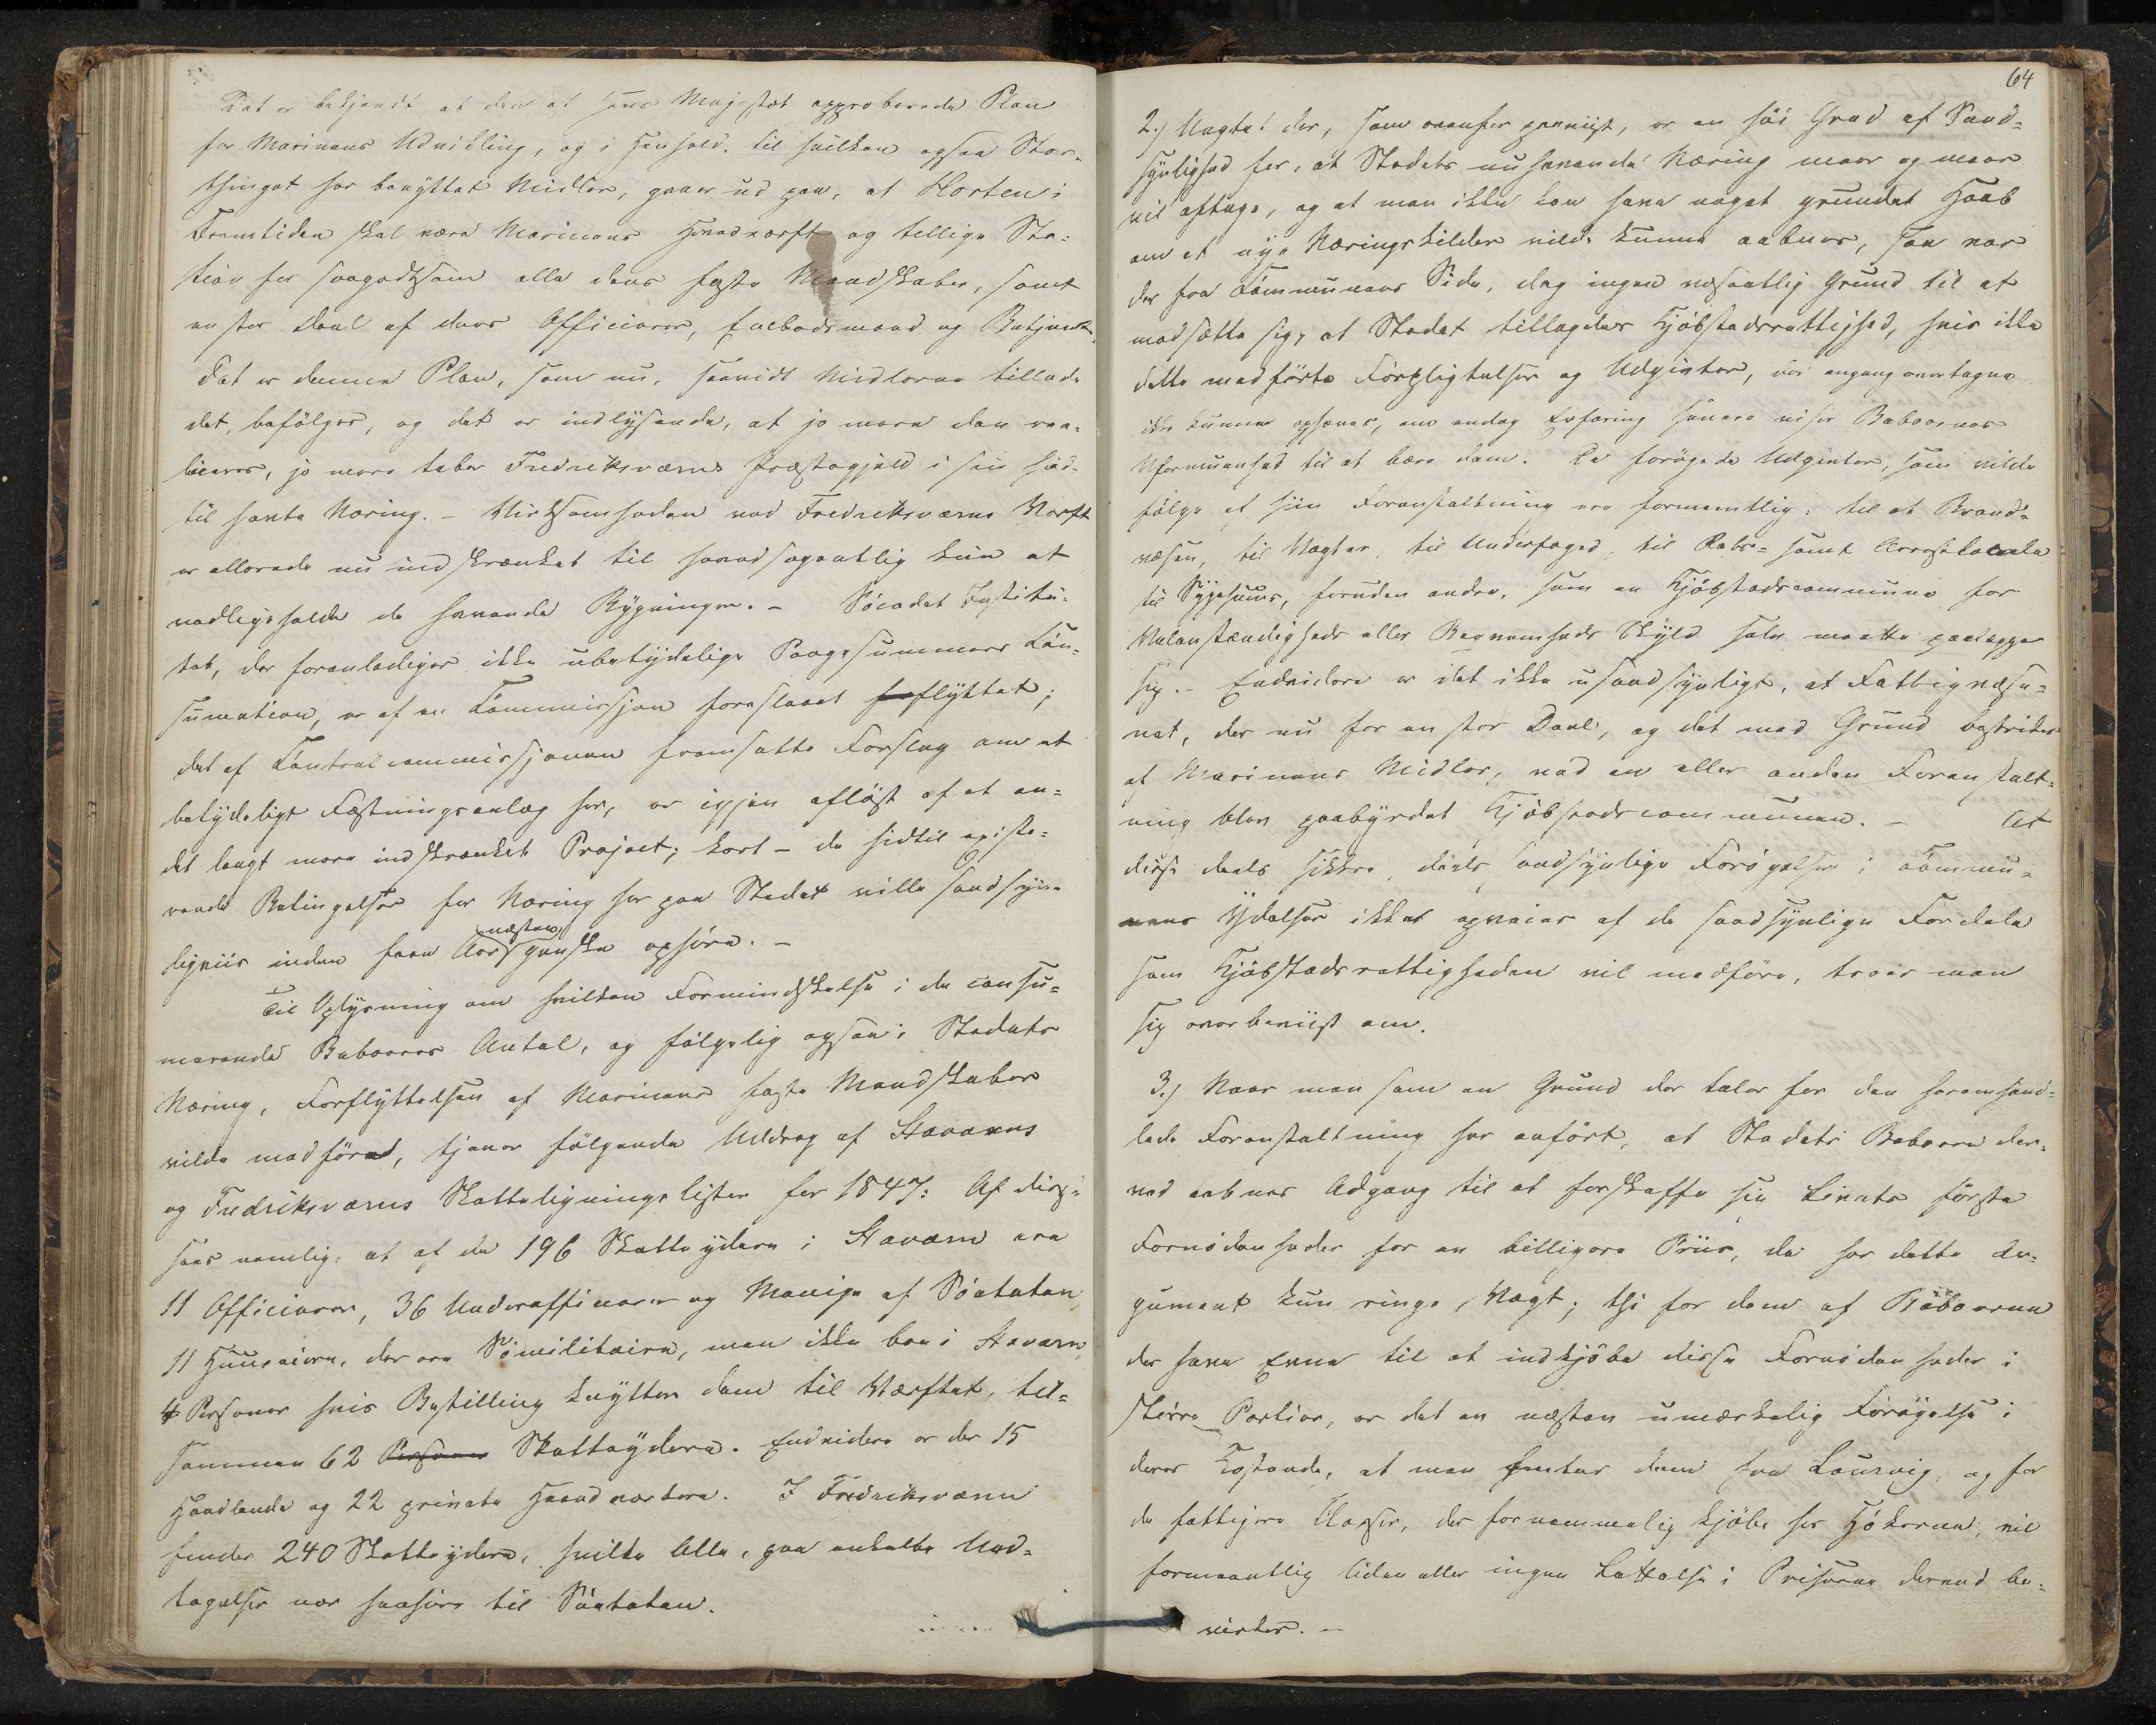 Det er bekjendt at den af Hans Majestæt approberede Plan
for Marinens Udvikling, og i Henhold til hvilken ogsaa Stor-
thinget har benyttet Midler, gaaer ud paa, at Horten i
Fremtiden skal være Marinens Hovedværft og tillige Sta-
tion for saagodtsom alle dens faste Mandskaber, samt
en stor Deel af dens Officierer, Embedsmænd og Betjente,
Det er denne Plan, som nu, saavidt Midlerne tillade
det, befölges, og det er indlysende, at jo mere den rea-
liseres, jo mere taber Fredriksværns Præstegjeld i sin hid-
til havte Næring. - Virksomheden ved Fredriksværns Værft
er allerede nu indskrænket til hovedsagentlig kun at
vedligeholde de havende Bygninger. - Söcadet Institu-
tet, der foranlediger ikke ubetydelige Pengesummers Con-
sumation, er af en Commissjon foreslaaet forflyttet;
det af Centralcommissjonen fremsatte Forslag om et
betydeligt Fæstningsanlæg her, er igjen aflöst af et an-
det langt mere indskrænket Project; kort - de hidtil existe-
rende Betingelser for Næring her paa Stedet ville sandsyn-
ligviis inden faae Aar næsten ganske ophöre. -
Til Oplysning om hvilken Formindskelse i de consu-
merende Beboeres Antal, og fölgelig ogsaa i Stedets
Næring, Forflyttelsen af Marinens faste Mandskaber
vilde medföre, tjener fölgende Uddrag af Staværns
og Fredriksværns Skatteligningslister for 1847: Af disse
sees nemlig, at af de 196 Skatteydere i Staværn ere
11 Officierer, 36 Underofficerer og Menige af Söetaten,
11 Huuseiere, der ere Sömilitaire, men ikke boe i Staværn,
4 Personer hvis Bestilling knytter dem til Værftet, til-
sammen 62 Personer Skatteydere. Endvidere er der 15
Handlende og 22 private Haandværkere. I Fredriksværn
findes 240 Skatteydere, hvilke Alle, paa enkelte Und-
tagelser nær henhöre til Söetaten.
64
2.) Uagtet der, som ovenfor paaviist, er en höi Grad af Sand-
synlighed for, at Stedets nuhavende Næring meer og meer
vil aftage, og at man ikke kan have noget grundet Haab
om at nye Næringskilder vilde kunne aabnes, saa var
der fra Communens Side, dog ingen væsentlig Grund til at
modsætte sig, at Stedet tillagdes Kjöbstadsrettighed, hvis ikke
dette medförte Forpligtelser og Udgivter, der engang overtagne
ikke kunne ophæves, om endog Erfaring senere viser Beboernes
Uformuenhed til at bære dem. De forögede Udgivter, som vilde
fölge af hiin Foranstaltning ere formentlig: til et Brand-
væsen, til Vægter, til Underfoged, til Raad- samt Arrestlocale
til Sygehuus, foruden andre, som en Kjöbstadcommune for
Velanstændigheds eller Beqvemheds Skyld selv maatte paalægge
sig. - Endvidere er det ikke usandsynligt, at Fattigvæse-
net, der nu for en stor Deel, og det med Grund bestrides
af Marinens Midler, ved en eller anden Foranstalt-
ning blev paabyrdet Kjöbstadcommunen. - At
disse deels sikkre, deels sandsynlige Forögelser i Commu-
nens Ydelser ikke opveies af de sandsynlige Fordele
som Kjöbstadsrettigheden vil medföre, troer man
sig overbeviist om.
3.) Naar man som en Grund der taler for den heromhand-
lede Foranstaltning har anfört, at Stedets Beboere der-
ved aabnes Adgang til at forskaffe sig Livets förste
Fornödenheder for en billigere Priis, da har dette Ar-
gument kun ringe Vægt; thi for dem af Beboerne
der have Evne til at indkjöbe disse Fornödenheder i
större Portier, er det en næsten umærkelig Forögelse i
deres Kostende, at man henter dem fra Laurvig, og for
de fattigere Classer, der fornemmelig kjöbe hos Hökerne, vil
formeentlig liden eller ingen Lettelse i Priserne derved be-
virkes. -